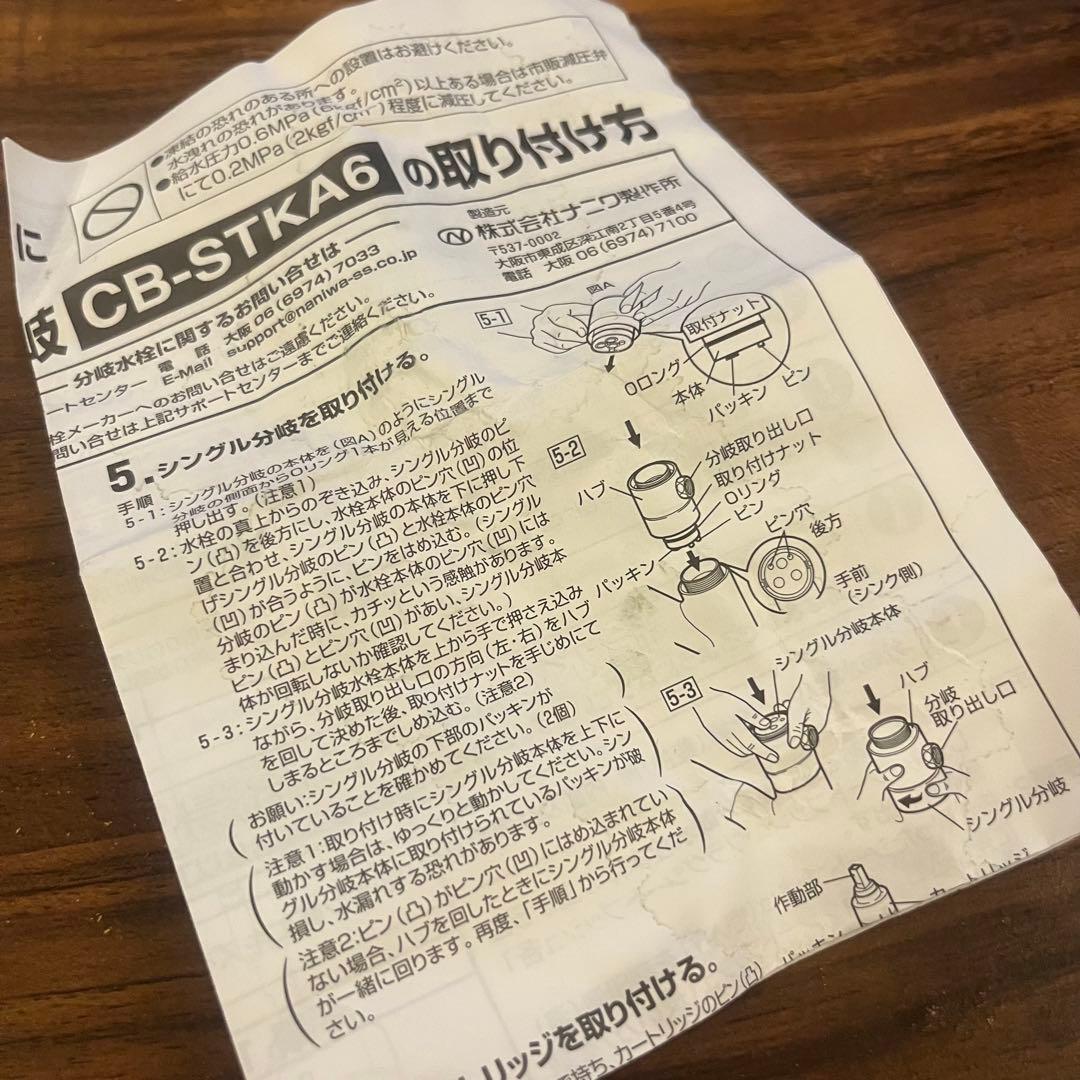 ●凍結の恐れのある所への設置はお避けください。
水洩れの恐れがあります。
●給水圧力0.6MPa(6kgf/cm²)以上ある場合は市販減圧弁
にて0.2MPa(2kgf/cm²)程度に減圧してください。
に
岐 CB-STKA6 の取り付け方
分岐水栓に関するお問い合せは
ートセンター 電話 大阪 06(6974)7033
E-Mail support@naniwa-ss.co.jp
栓メーカーへのお問い合せはご遠慮ください。
問い合せは上記サポートセンターまでご連絡ください。
製造元
株式会社ナニワ製作所
〒537-0002
大阪市東成区深江南2丁目5番4号
電話 大阪 06(6974)7100
5.シングル分岐を取り付ける。
手順
5-1:シングル分岐の本体を(図A)のようにシングル
分岐の側面からOリング1本が見える位置まで
押し出す。(注意1)
5-2:水栓の真上からのぞき込み、シングル分岐のピ
ン(凸)を後方にし、水栓本体のピン穴(凹)の位
置と合わせ、シングル分岐の本体を下に押し下
げシングル分岐のピン(凸)と水栓本体のピン穴
(凹)が合うように、ピンをはめ込む。(シングル
分岐のピン(凸)が水栓本体のピン穴(凹)には
まり込んだ時に、カチッという感触があります。
ピン(凸)とピン穴(凹)があい、シングル分岐本
体が回転しないか確認してください。)
5-3:シングル分岐水栓本体を上から手で押さえ込み
ながら、分岐取り出し口の方向(左・右)をハブ
を回して決めた後、取り付けナットを手じめにて
しまるところまでしめ込む。(注意2)
お願い:シングル分岐の下部のパッキンが
付いていることを確かめてください。(2個)
注意1:取り付け時にシングル分岐本体を上下に
動かす場合は、ゆっくりと動かしてください。シン
グル分岐本体に取り付けられているパッキンが破
損し、水漏れする恐れがあります。
注意2:ピン(凸)がピン穴(凹)にはめ込まれてい
ない場合、ハブを回したときにシングル分岐本体
が一緒に回ります。再度、「手順」から行ってくだ
さい。
図A
5-1
取付ナット
Oロング
本体
パッキン
ピン
5-2
ハブ
分岐取り出し口
取り付けナット
Oリング
ピン
パッキン
ピン穴
後方
手前
(シンク側)
5-3
シングル分岐本体
ハブ
分岐
取り出し口
シングル分岐
作動部
カートリッジ
パッキン
トリッジを取り付ける。
で持ち、カートリッジのピン(凸)